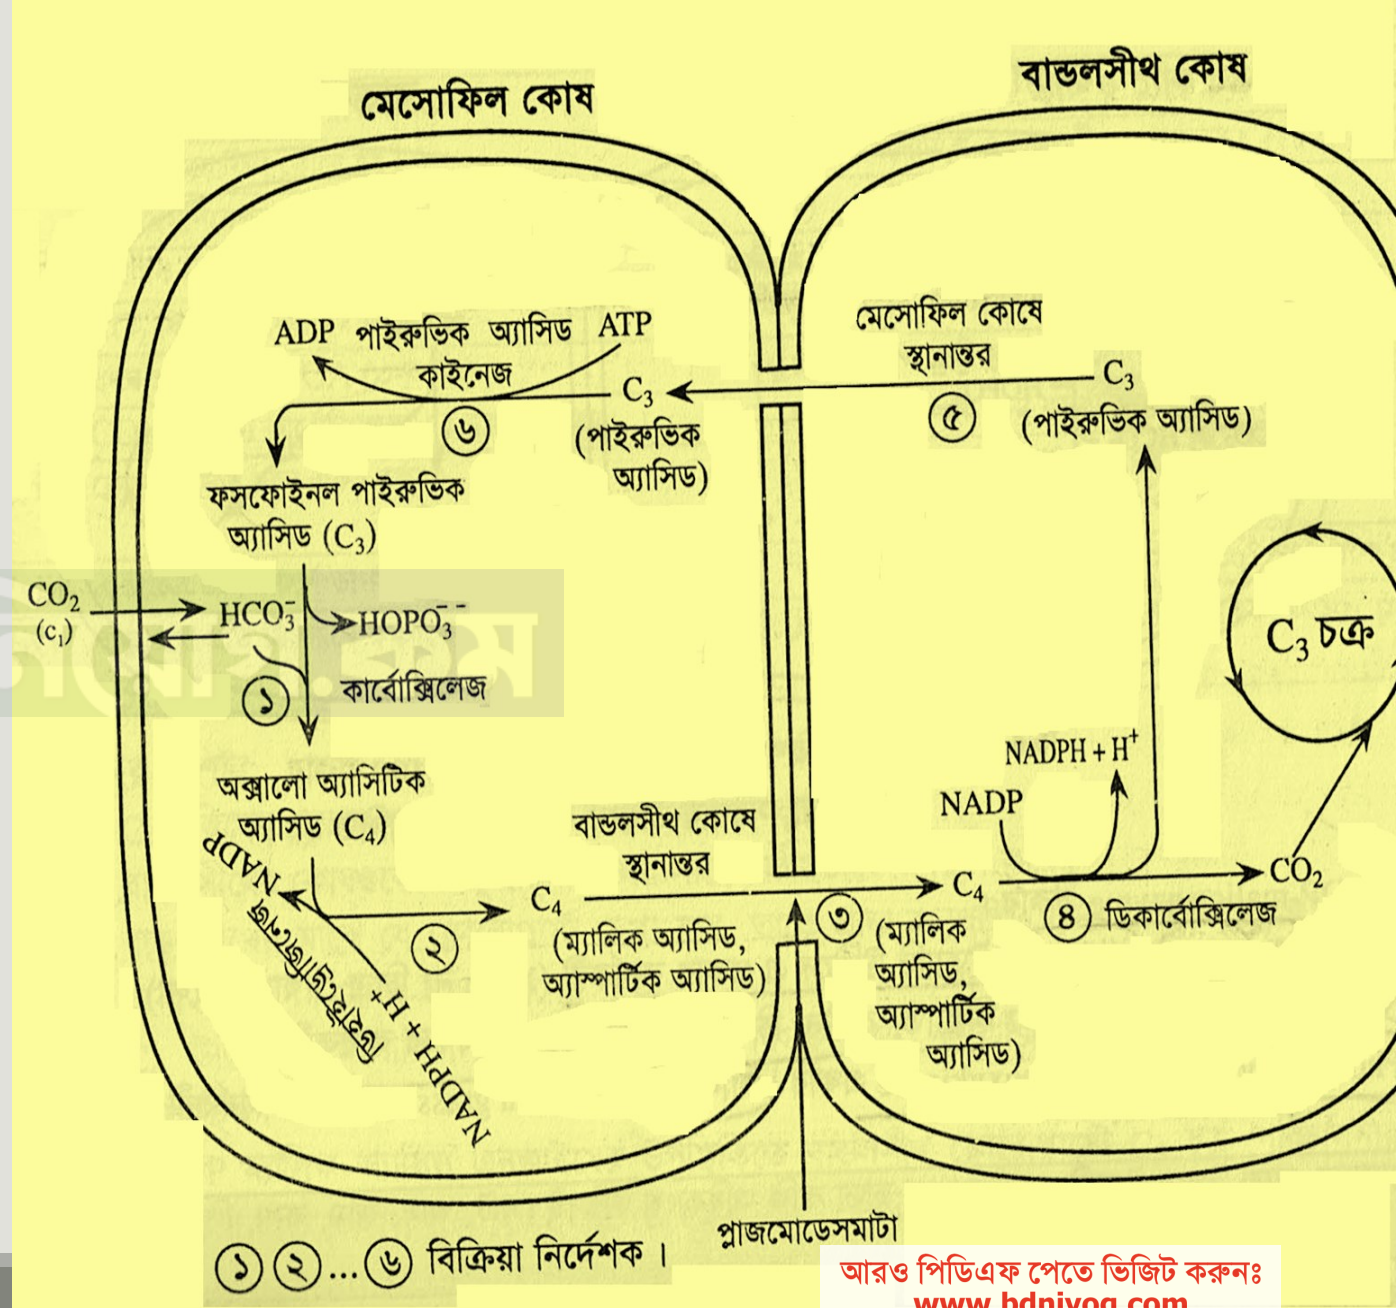 বান্ডলসীথ কোষ
মেসোফিল কোষ
ADP পাইরুভিক অ্যাসিড ATP
কাইনেজ
C₃
(পাইরুভিক
অ্যাসিড)
৬
মেসোফিল কোষে
স্থানান্তর
৫
C₃
(পাইরুভিক অ্যাসিড)
ফসফোইনল পাইরুভিক
অ্যাসিড (C₃)
CO₂
(c₁)
HCO₃⁻
HOPO₃⁻⁻
১
কার্বোক্সিলেজ
C₃ চক্র
অক্সালো অ্যাসিটিক
অ্যাসিড (C₄)
NADP
ডিহাইড্রোজিনেজ
NADPH + H⁺
২
C₄
(ম্যালিক অ্যাসিড,
অ্যাস্পার্টিক অ্যাসিড)
বান্ডলসীথ কোষে
স্থানান্তর
৩
C₄
(ম্যালিক
অ্যাসিড,
অ্যাস্পার্টিক
অ্যাসিড)
NADPH + H⁺
NADP
৪ ডিকার্বোক্সিলেজ
CO₂
প্লাজমোডেসমাটা
১ ২ ... ৬ বিক্রিয়া নির্দেশক ।
আরও পিডিএফ পেতে ভিজিট করুনঃ
www.bdniyog.com